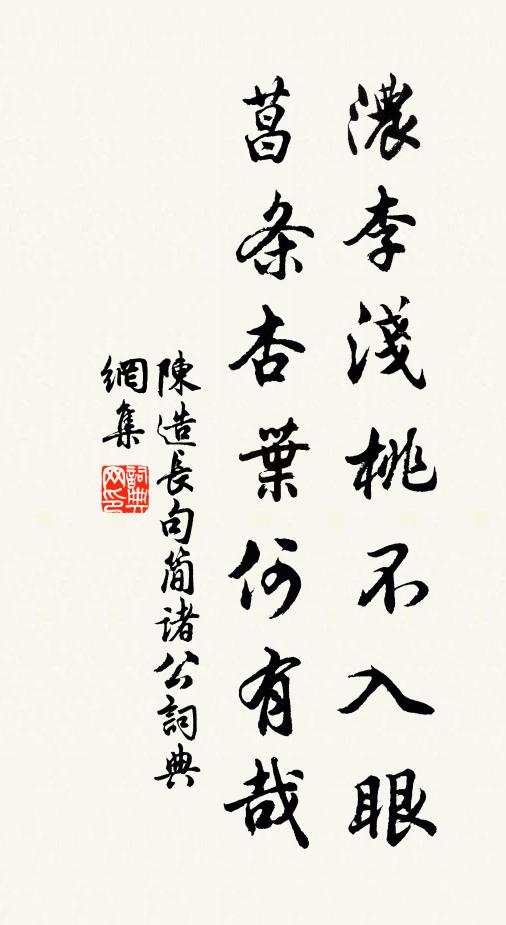 濃李淺桃不入眼
菖条杏葉何有哉
陳造長句簡諸公詞典
網集
詞典
网印